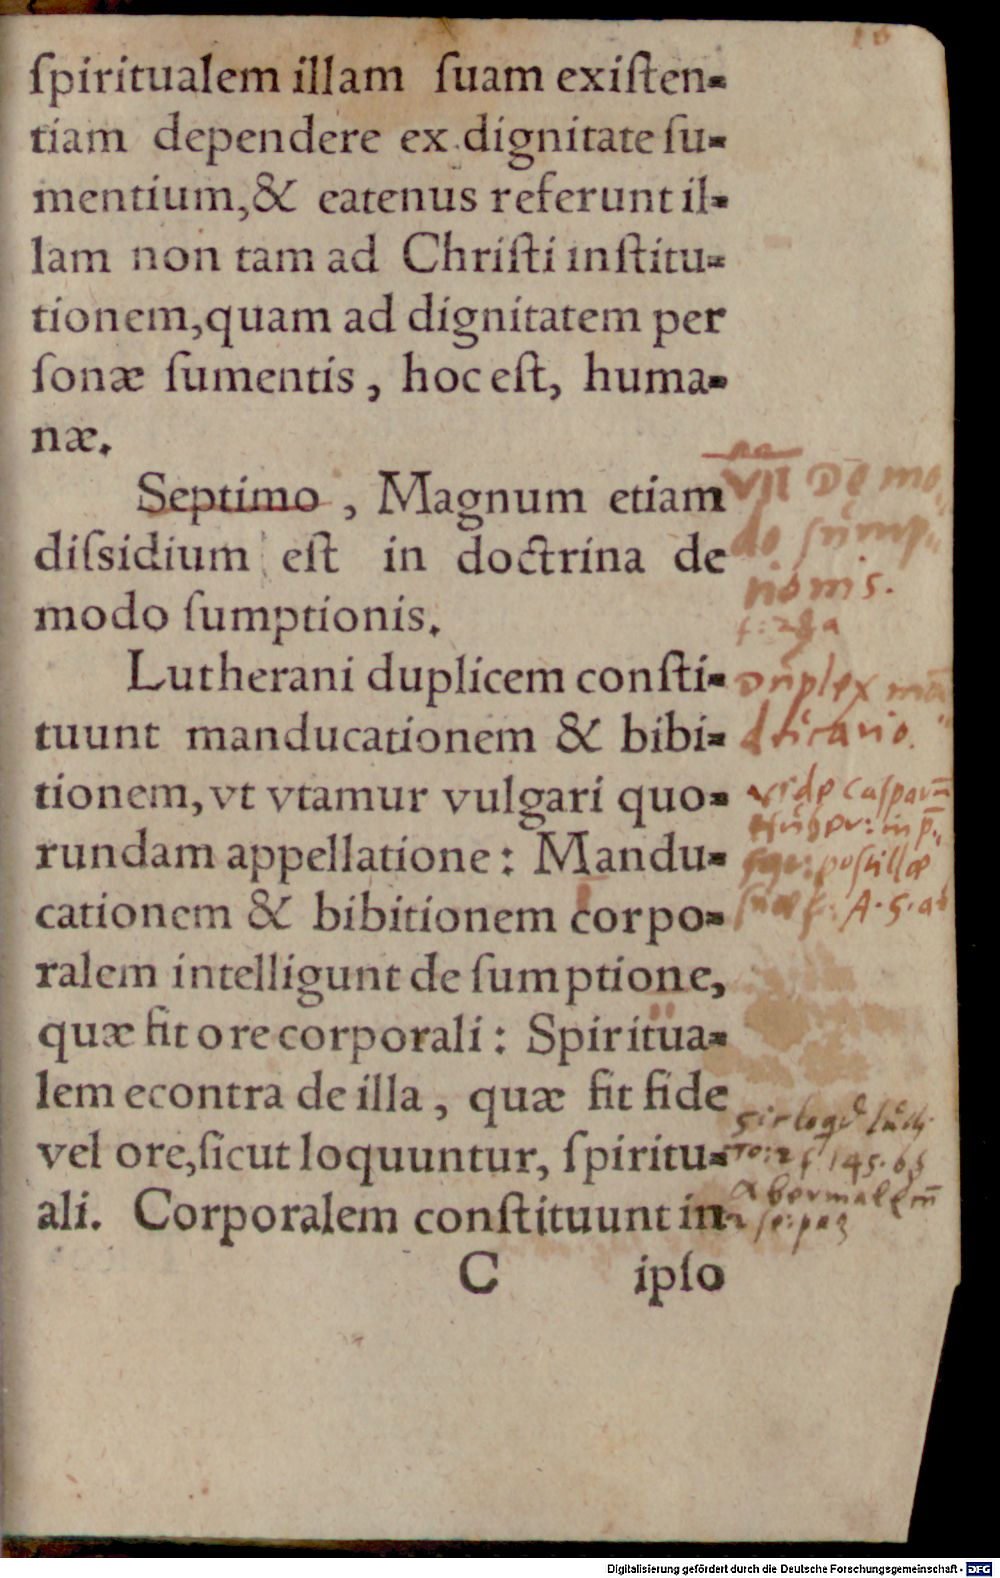 ſpiritualem illam ſuam exiſten-
tiam dependere ex dignitate ſu-
mentium, & eatenus referunt il-
lam non tam ad Chriſti inſtitu-
tionem, quam ad dignitatem per
ſonæ ſumentis, hoc eſt, huma-
næ.
Septimo, Magnum etiam
diſsidium eſt in doctrina de
modo ſumptionis.
VII De mo-
do sump-
tionis.
Lutherani duplicem conſti-
tuunt manducationem & bibi-
tionem, vt vtamur vulgari quo-
rundam appellatione: Mandu-
cationem & bibitionem corpo-
ralem intelligunt de ſumptione,
quæ fit ore corporali: Spiritua-
lem econtra de illa, quæ fit fide
vel ore, ſicut loquuntur, ſpiritu-
ali. Corporalem conſtituunt in
Duplex man
ducatio.
vide Casparū
Huber: in
postillæ
suæ f: A. 5. a b
Sic loq
To: 2 f 145. b
C ipſo
Digitalisierung gefördert durch die Deutsche Forschungsgemeinschaft - DFG